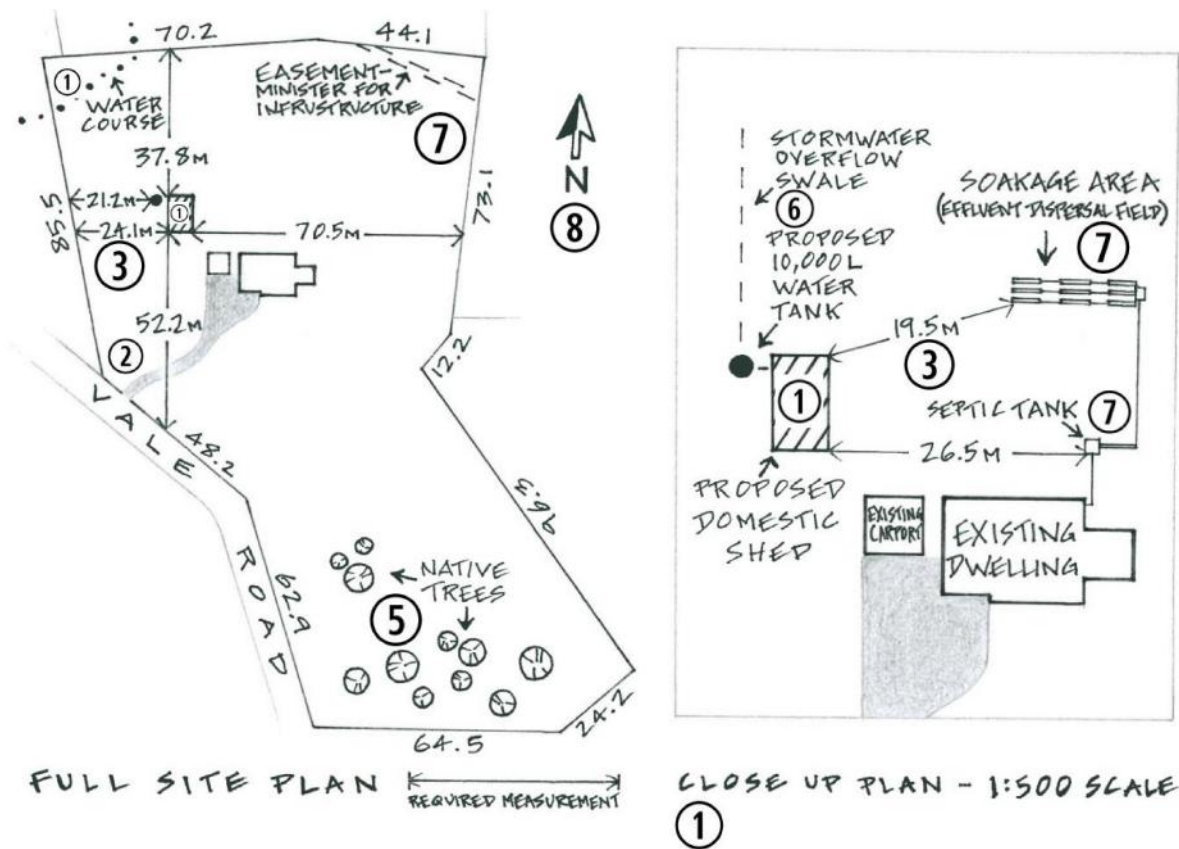 70.2
44.1
①
WATER
COURSE
EASEMENT-
MINISTER FOR
INFRUSTRUCTURE
⑦
37.8M
N
⑧
21.2M
①
24.1M
70.5M
85.5
73.1
③
52.2M
②
12.2
LALE ROAD
48.2
96.3
62.9
NATIVE
TREES
⑤
24.2
64.5
FULL SITE PLAN
REQUIRED MEASUREMENT
STORMWATER
OVERFLOW
SWALE
⑥
PROPOSED
10,000L
WATER
TANK
SOAKAGE AREA
(EFFLUENT DISPERSAL FIELD)
⑦
19.5M
③
①
SEPTIC TANK
⑦
26.5M
PROPOSED
DOMESTIC
SHED
EXISTING
CARPORT
EXISTING
DWELLING
CLOSE UP PLAN - 1:500 SCALE
①